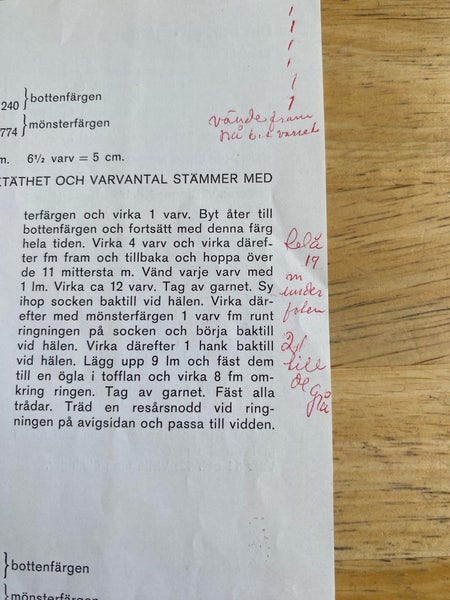 240 } bottenfärgen
774 } mönsterfärgen
vände fram
m. 6½ varv = 5 cm.
TÄTHET OCH VARVANTAL STÄMMER MED
terfärgen och virka 1 varv. Byt åter till
bottenfärgen och fortsätt med denna färg
hela tiden. Virka 4 varv och virka däref-
ter fm fram och tillbaka och hoppa över
de 11 mittersta m. Vänd varje varv med
1 lm. Virka ca 12 varv. Tag av garnet. Sy
ihop socken baktill vid hälen. Virka där-
efter med mönsterfärgen 1 varv fm runt
ringningen på socken och börja baktill
vid hälen. Virka därefter 1 hank baktill
vid hälen. Lägg upp 9 lm och fäst dem
till en ögla i tofflan och virka 8 fm om-
kring ringen. Tag av garnet. Fäst alla
trådar. Träd en resårsnodd vid ring-
ningen på avigsidan och passa till vidden.
19
m
under
2st
till
de
grå
} bottenfärgen
} mönsterfärgen